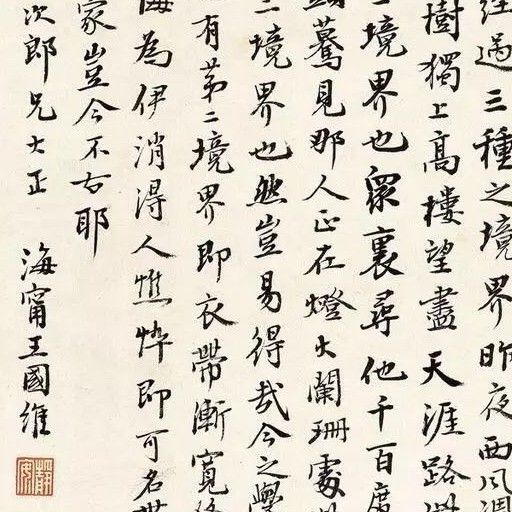 經過三種之境界昨夜西風凋
樹獨上高樓望盡天涯路
一境界也眾裏尋他千百度
驀見那人正在燈火闌珊處
二境界也然豈易得哉今之學
有第二境界即衣帶漸寬終
悔為伊消得人憔悴即可名世
家豈今不古耶
次郎兄大正
海甯王國維
靜安